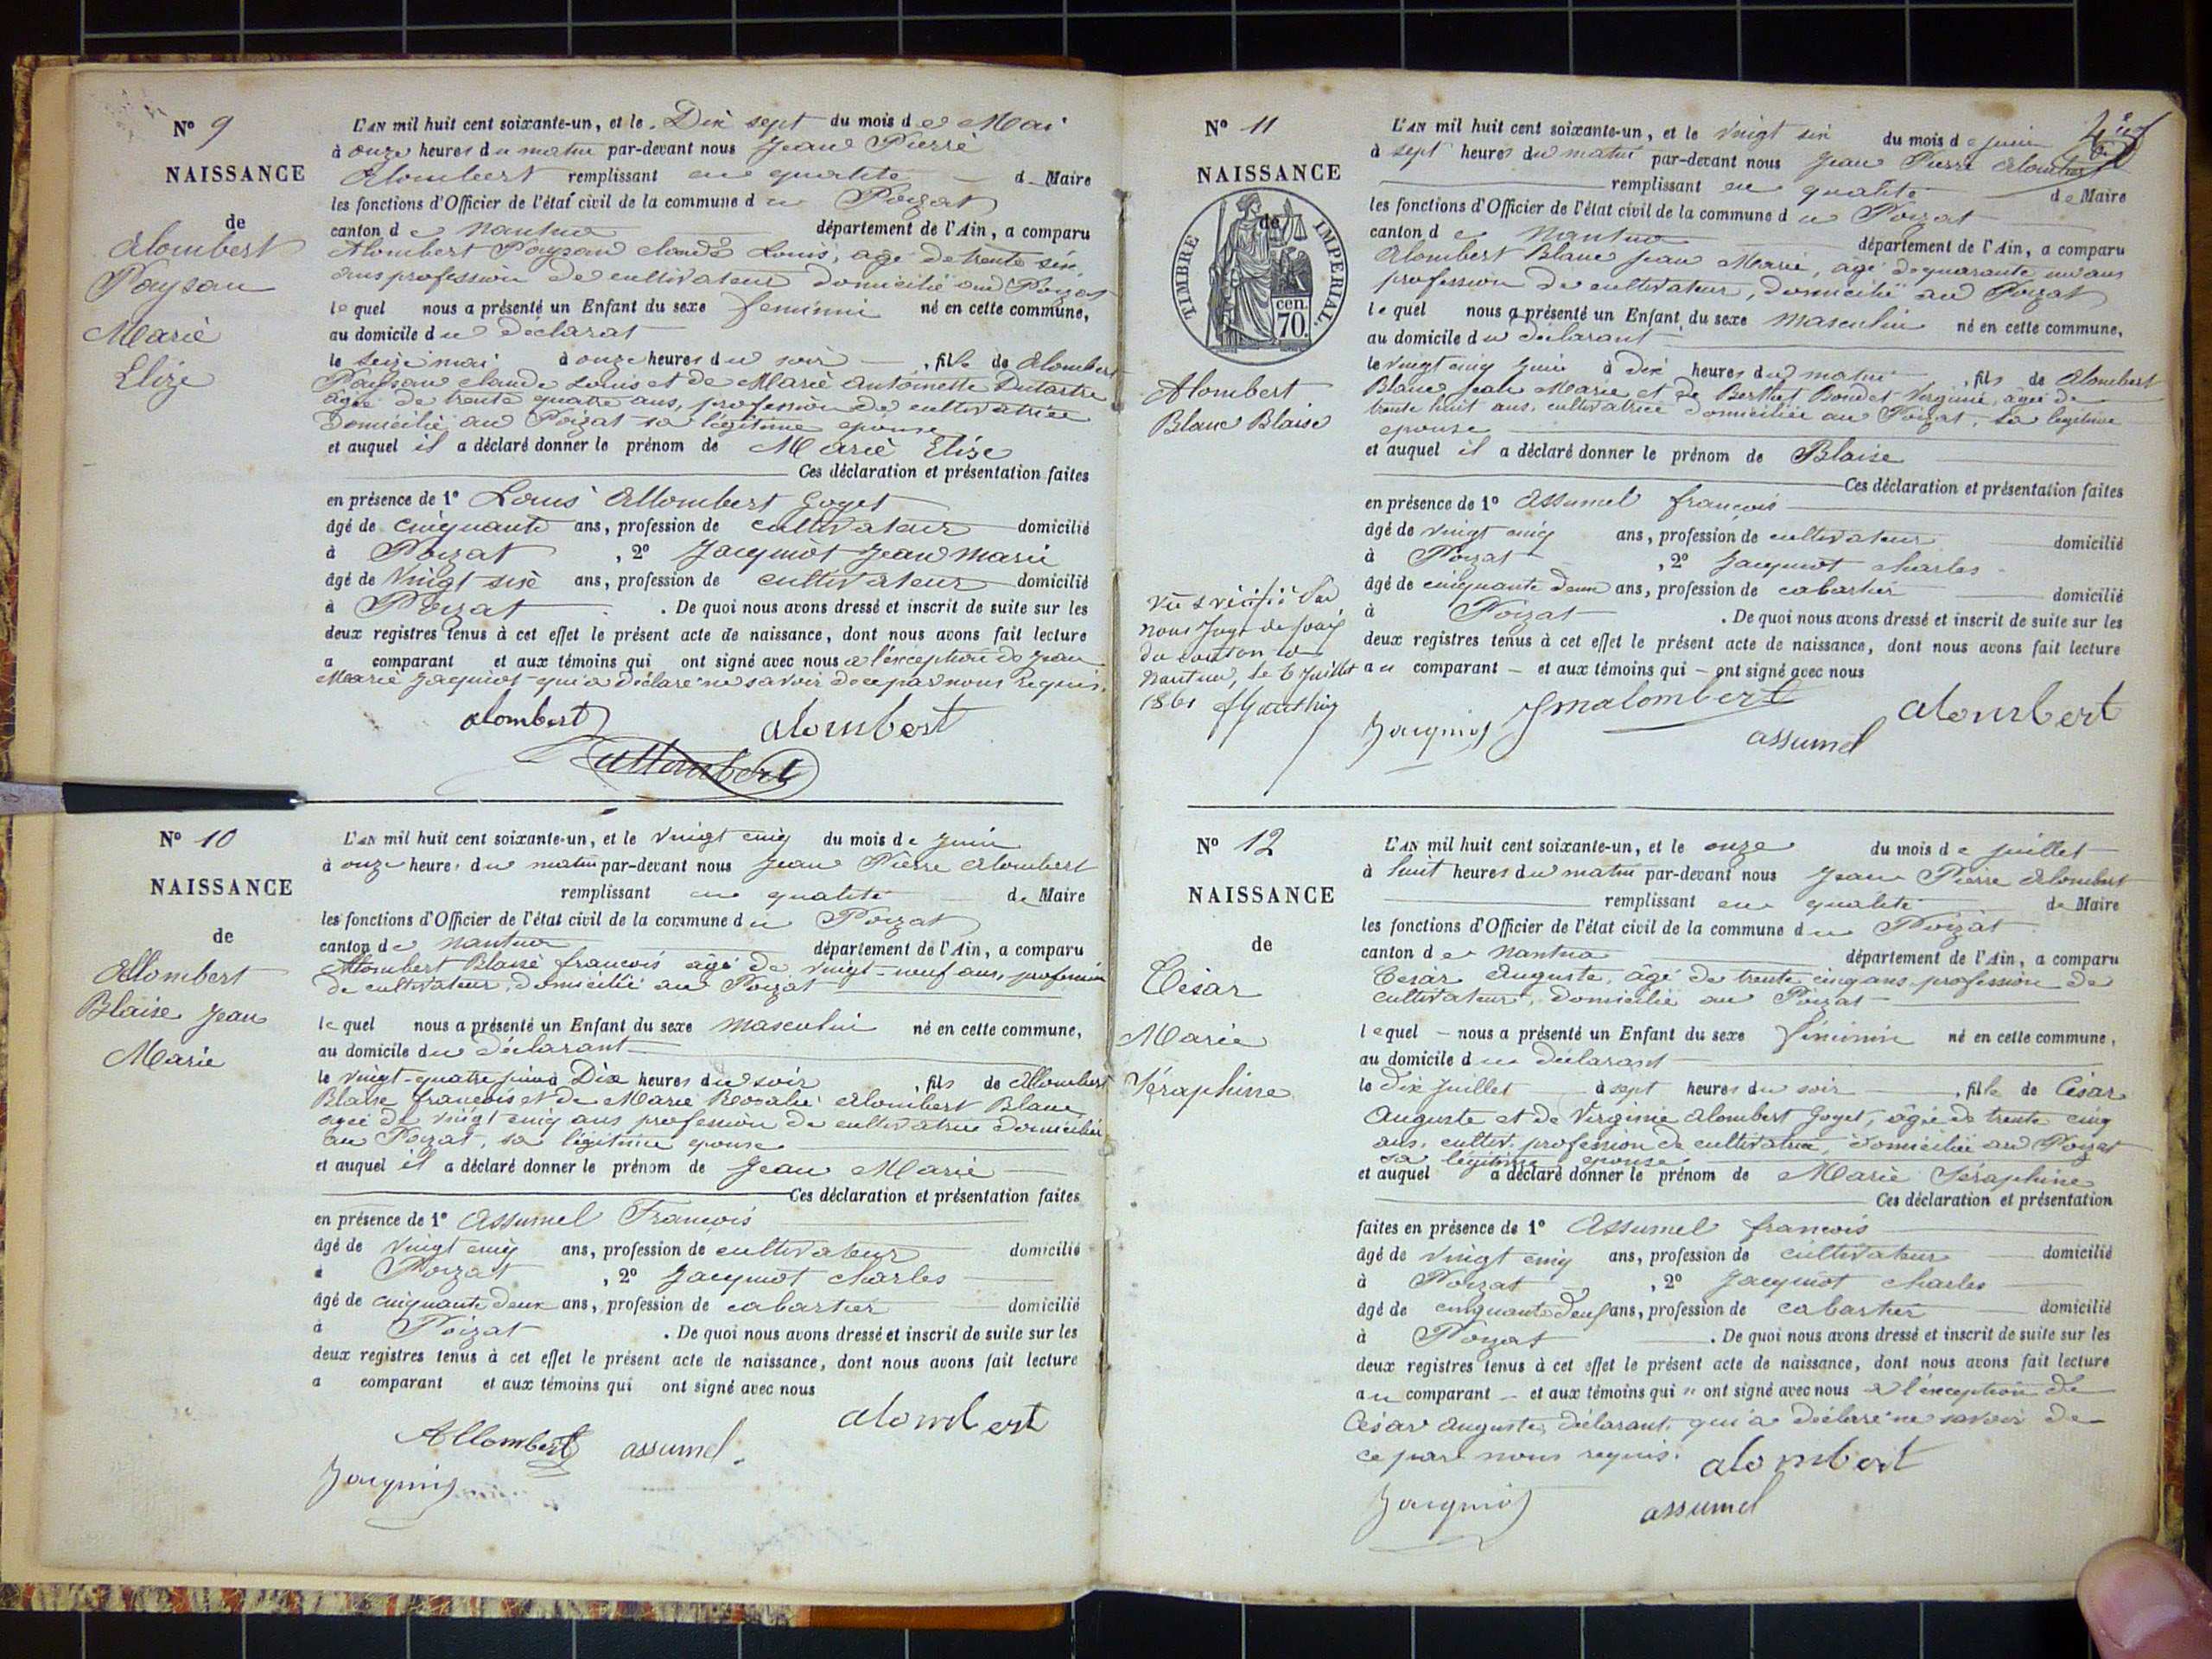 Nº 9
NAISSANCE
de
Alombert
Paysan
Marie
Elize
L'AN mil huit cent soixante-un, et le Dix sept du mois de Mai
à onze heures du matin par-devant nous Jean Pierre
Alombert remplissant en qualité de Maire
les fonctions d'Officier de l'état civil de la commune du Poizat
canton de Nantua département de l'Ain, a comparu
Alombert Paysan claude Louis, agé de trente six
ans profession de cultivateur domicilié au Poizat
lequel nous a présenté un Enfant du sexe feminin né en cette commune,
au domicile du declarat
le seize mai à onze heures du soir, fille de Alombert
Paysan claude Louis et de Marie antoinette Dutartre
agée de trente quatre ans, profession de cultivatrice
domicilié au Poizat sa légitime epouse
et auquel il a déclaré donner le prénom de Marie Elise
Ces déclaration et présentation faites
en présence de 1º Louis Allombert Goyet
âgé de cinquante ans, profession de cultivateur domicilié
à Poizat, 2º Jacquiot Jean Marie
âgé de Vingt sixe ans, profession de cultivateur domicilié
à Poizat. De quoi nous avons dressé et inscrit de suite sur les
deux registres tenus à cet effet le présent acte de naissance, dont nous avons fait lecture
a comparant et aux témoins qui ont signé avec nous a l'exception de Jean
Marie Jaquiot qui a déclaré ne savoir de ce par nous requis.
alombert
alombert
allombert
Nº 10
NAISSANCE
de
Allombert
Blaise Jean
Marie
L'AN mil huit cent soixante-un, et le vingt cinq du mois de Juin
à onze heure, du matin par-devant nous Jean Pierre Alombert
remplissant en qualité de Maire
les fonctions d'Officier de l'état civil de la commune du Poizat
canton de Nantua département de l'Ain, a comparu
Allombert Blaise francois agé de vingt-neuf ans, profession
de cultivateur, domicilié au Poizat
lequel nous a présenté un Enfant du sexe masculin né en cette commune,
au domicile du déclarant
le vingt-quatre juin à Dix heures du soir, fils de Allombert
Blaise francois et de Marie Rosalie Alombert Blanc
agée de vingt cinq ans profession de cultivatrice domiciliée
au Poizat, sa légitime epouse
et auquel il a déclaré donner le prénom de Jean Marie
Ces déclaration et présentation faites
en présence de 1º Assumel Francois
âgé de vingt cinq ans, profession de cultivateur domicilié
à Poizat, 2º Jacquiot charles
âgé de cinquante deux ans, profession de cabartier domicilié
à Poizat. De quoi nous avons dressé et inscrit de suite sur les
deux registres tenus à cet effet le présent acte de naissance, dont nous avons fait lecture
a comparant et aux témoins qui ont signé avec nous
alombert
Allombert assumel
Jacquiot
Nº 11
NAISSANCE
de
TIMBRE IMPERIAL
70 cen.
Alombert
Blanc Blaise
vu & vérifié par
nous Juge de paix
du canton de
Nantua, le 6 Juillet
1861
L'AN mil huit cent soixante-un, et le vingt six du mois de juin
à sept heures du matin par-devant nous Jean Pierre Alombert
remplissant en qualité de Maire
les fonctions d'Officier de l'état civil de la commune du Poizat
canton de Nantua département de l'Ain, a comparu
Alombert Blanc Jean Marie, âgé de quarante un ans
profession de cultivateur, domicilié au Poizat
lequel nous a présenté un Enfant du sexe masculin né en cette commune,
au domicile du déclarant
le vingt cinq Juin à dix heures du matin, fils de Alombert
Blanc Jean Marie et de Berthet Bondet Virginie, agée de
trente huit ans, cultivatrice domiciliée au Poizat, sa legitime
epouse
et auquel il a déclaré donner le prénom de Blaise
Ces déclaration et présentation faites
en présence de 1º Assumel francois
âgé de vingt cinq ans, profession de cultivateur domicilié
à Poizat, 2º Jacquiot charles
âgé de cinquante deux ans, profession de cabartier domicilié
à Poizat. De quoi nous avons dressé et inscrit de suite sur les
deux registres tenus à cet effet le présent acte de naissance, dont nous avons fait lecture
au comparant et aux témoins qui ont signé avec nous
Jacquiot Jmalombert alombert
assumel
Nº 12
NAISSANCE
de
César
Marie
Séraphine
L'AN mil huit cent soixante-un, et le onze du mois de juillet
à huit heures du matin par-devant nous Jean Pierre Alombert
remplissant en qualité de Maire
les fonctions d'Officier de l'état civil de la commune du Poizat
canton de Nantua département de l'Ain, a comparu
César Auguste, âgé de trente cinq ans profession de
cultivateur, domicilié au Poizat
lequel nous a présenté un Enfant du sexe féminin né en cette commune,
au domicile du déclarant
le dix juillet à sept heures du soir, fille de César
Auguste et de Virginie Alombert Goyet, âgée de trente cinq
ans, cultiv. profession de cultivatrice, domiciliée au Poizat
sa légitime epouse
et auquel a déclaré donner le prénom de Marie Séraphine
Ces déclaration et présentation
faites en présence de 1º Assumel francois
âgé de vingt cinq ans, profession de cultivateur domicilié
à Poizat, 2º Jacquiot charles
âgé de cinquante deux ans, profession de cabartier domicilié
à Poizat. De quoi nous avons dressé et inscrit de suite sur les
deux registres tenus à cet effet le présent acte de naissance, dont nous avons fait lecture
au comparant et aux témoins qui ont signé avec nous a l'exception de
César Auguste, déclarant, qui a déclaré ne savoir de
ce par nous requis. alombert
Jacquiot assumel